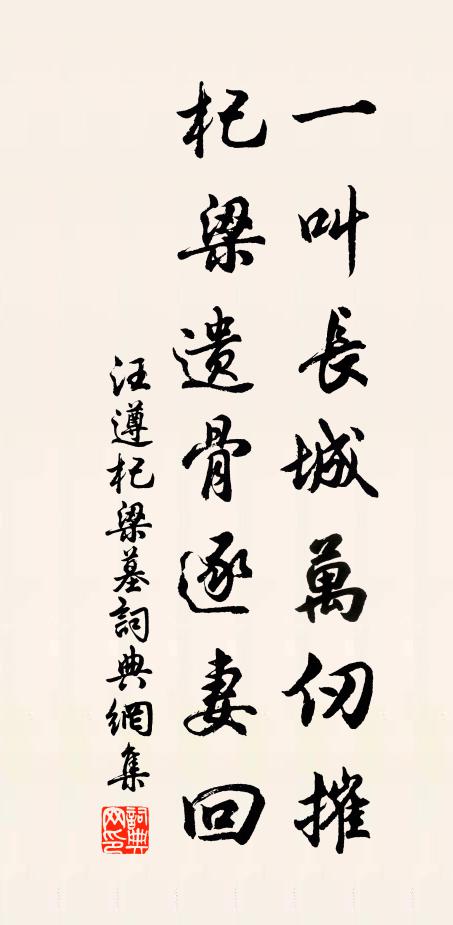 一叫長城萬仞摧
杞梁遗骨逐妻回
汪遵杞梁墓詞典網集
詞典
网印